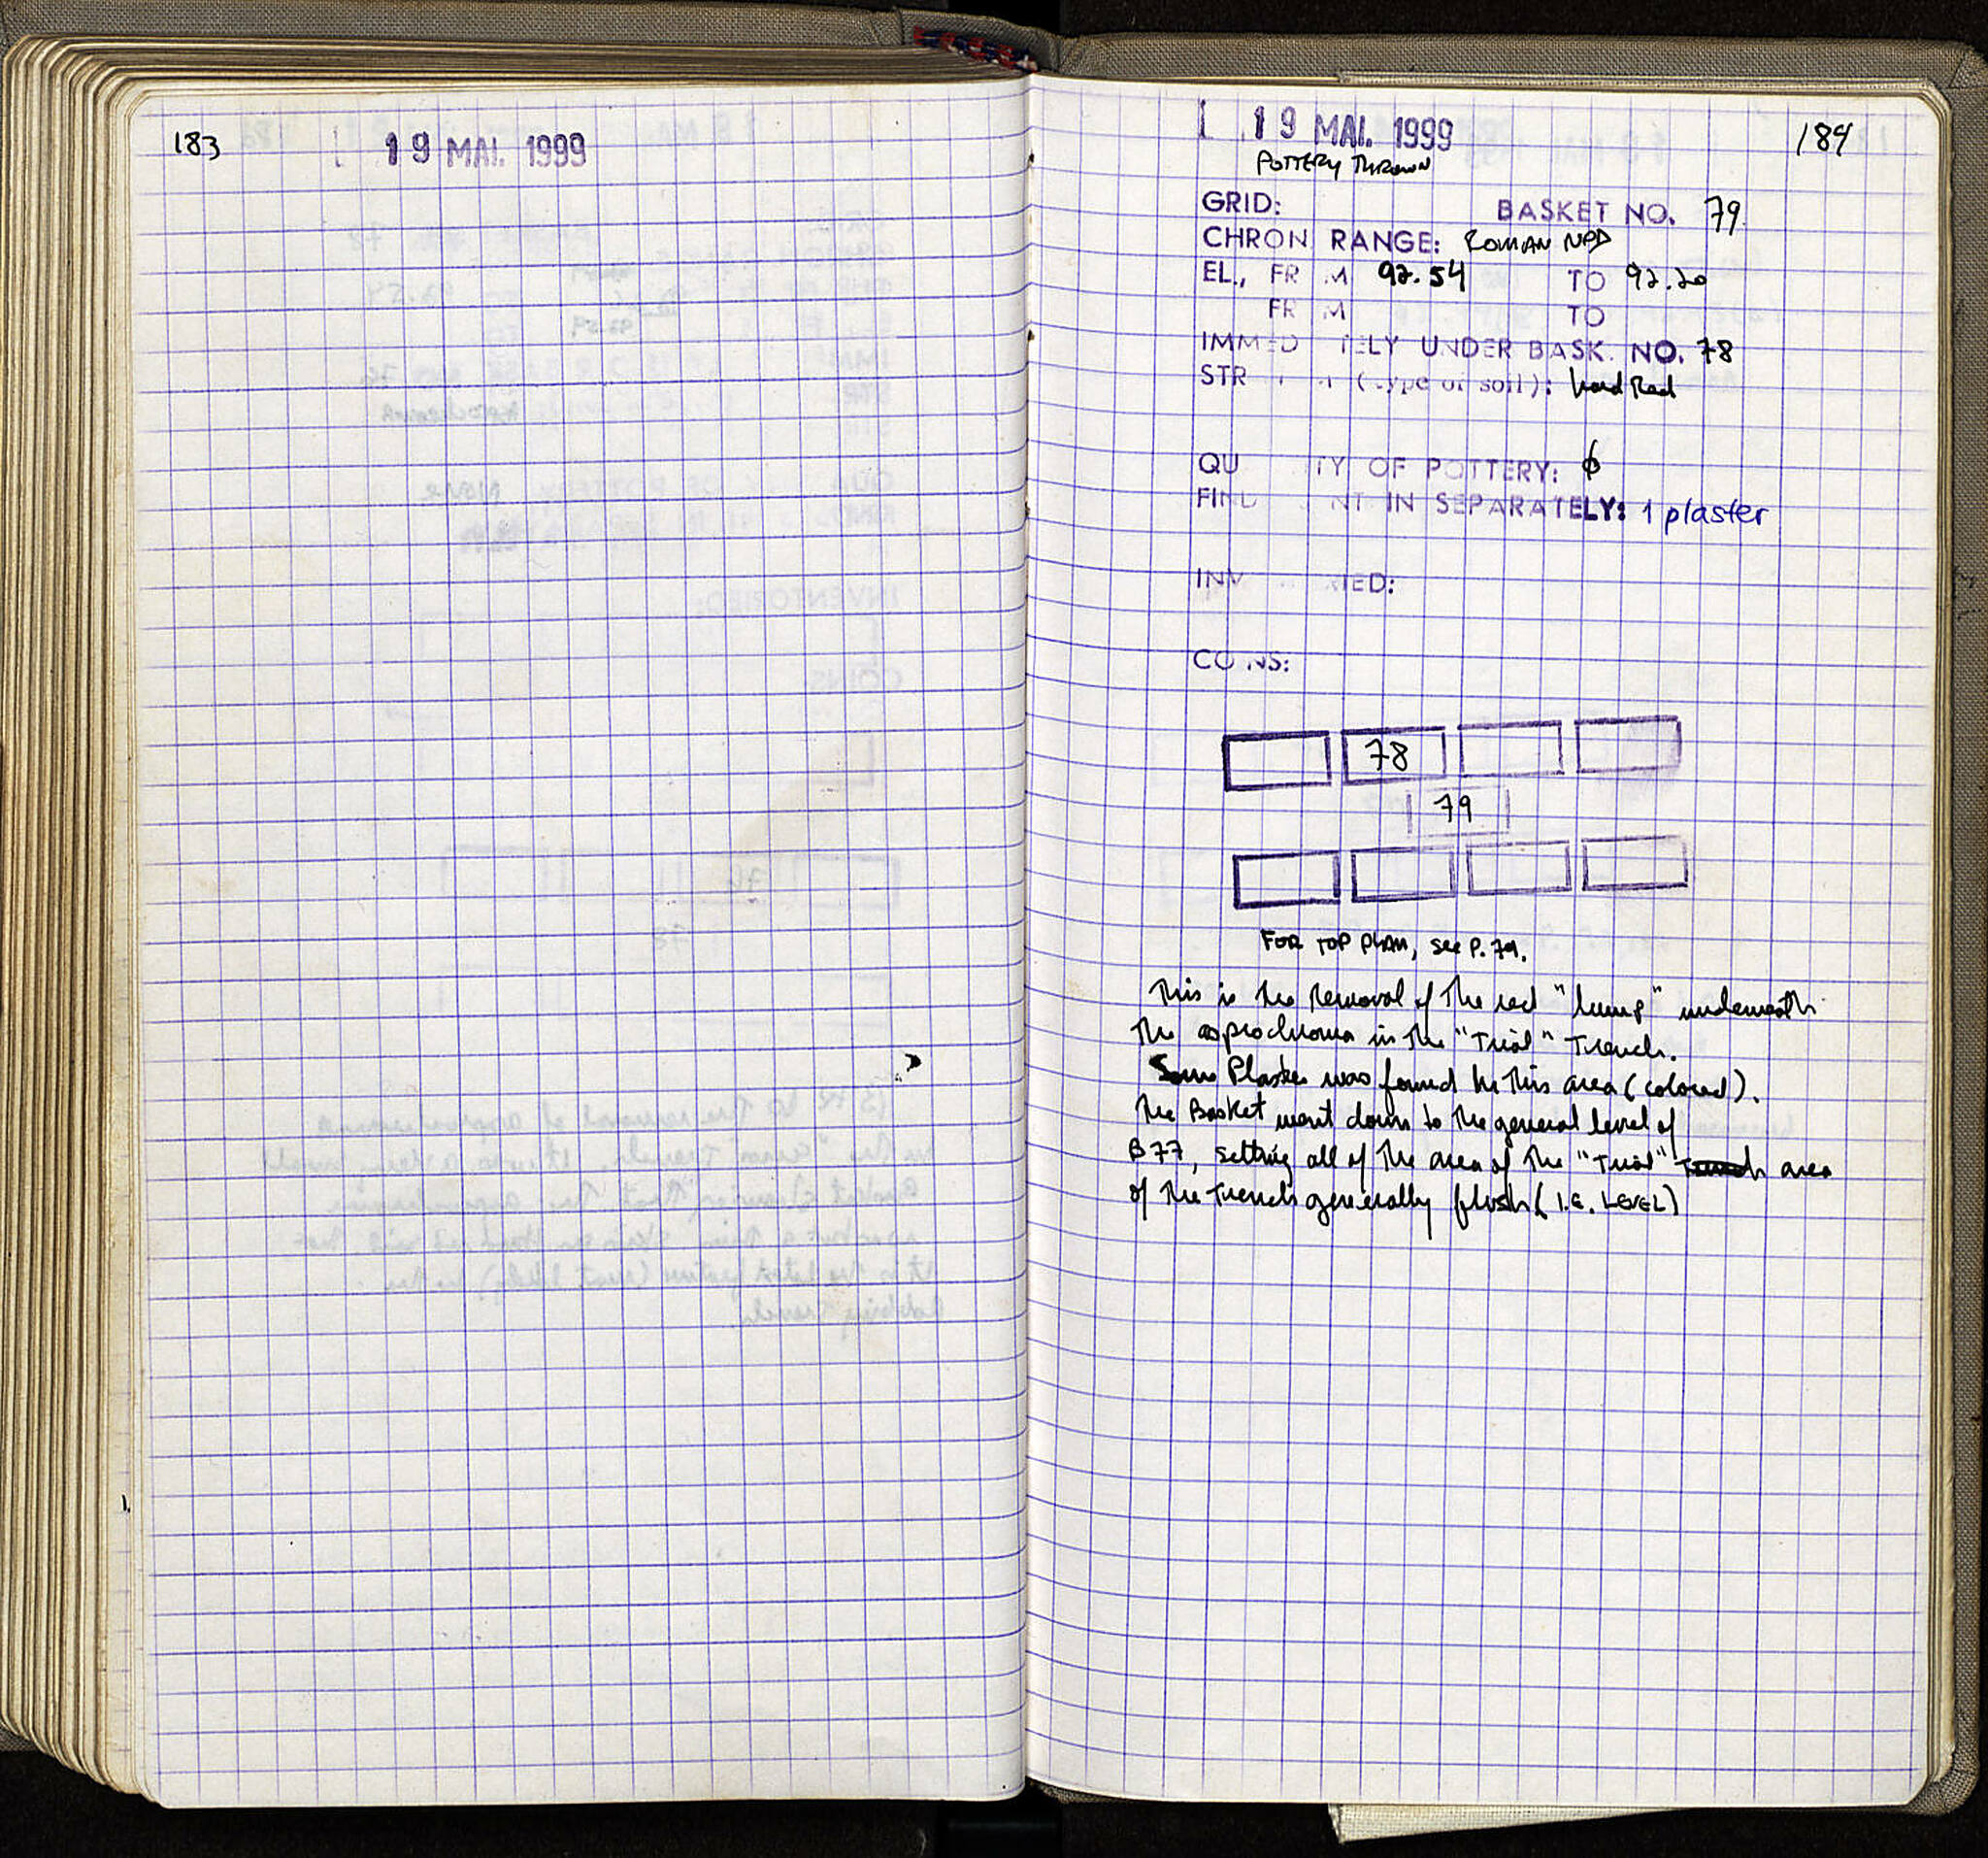 183
19 MAI. 1999
19 MAI. 1999
184
POTTERY THROWN
GRID: BASKET NO. 79
CHRON RANGE: ROMAN NPD
EL., FR M 92.54 TO 92.20
FR M TO
IMMED TELY UNDER BASK. NO. 78
STR (type of soil): hard Red
QU TY OF POTTERY: ϕ
FIND NT IN SEPARATELY: 1 plaster
INV RIED:
CO NS:
78
79
FOR TOP PLAN, see P. 79.
This is the Removal of the red "lump" underneath
the asprochroma in the "Trial" Trench.
Some Plaster was found in this area (colored).
The Basket went down to the general level of
B77, setting all of the area of the "Trial" Trench area
of the Trench generally flush (I.E. LEVEL)